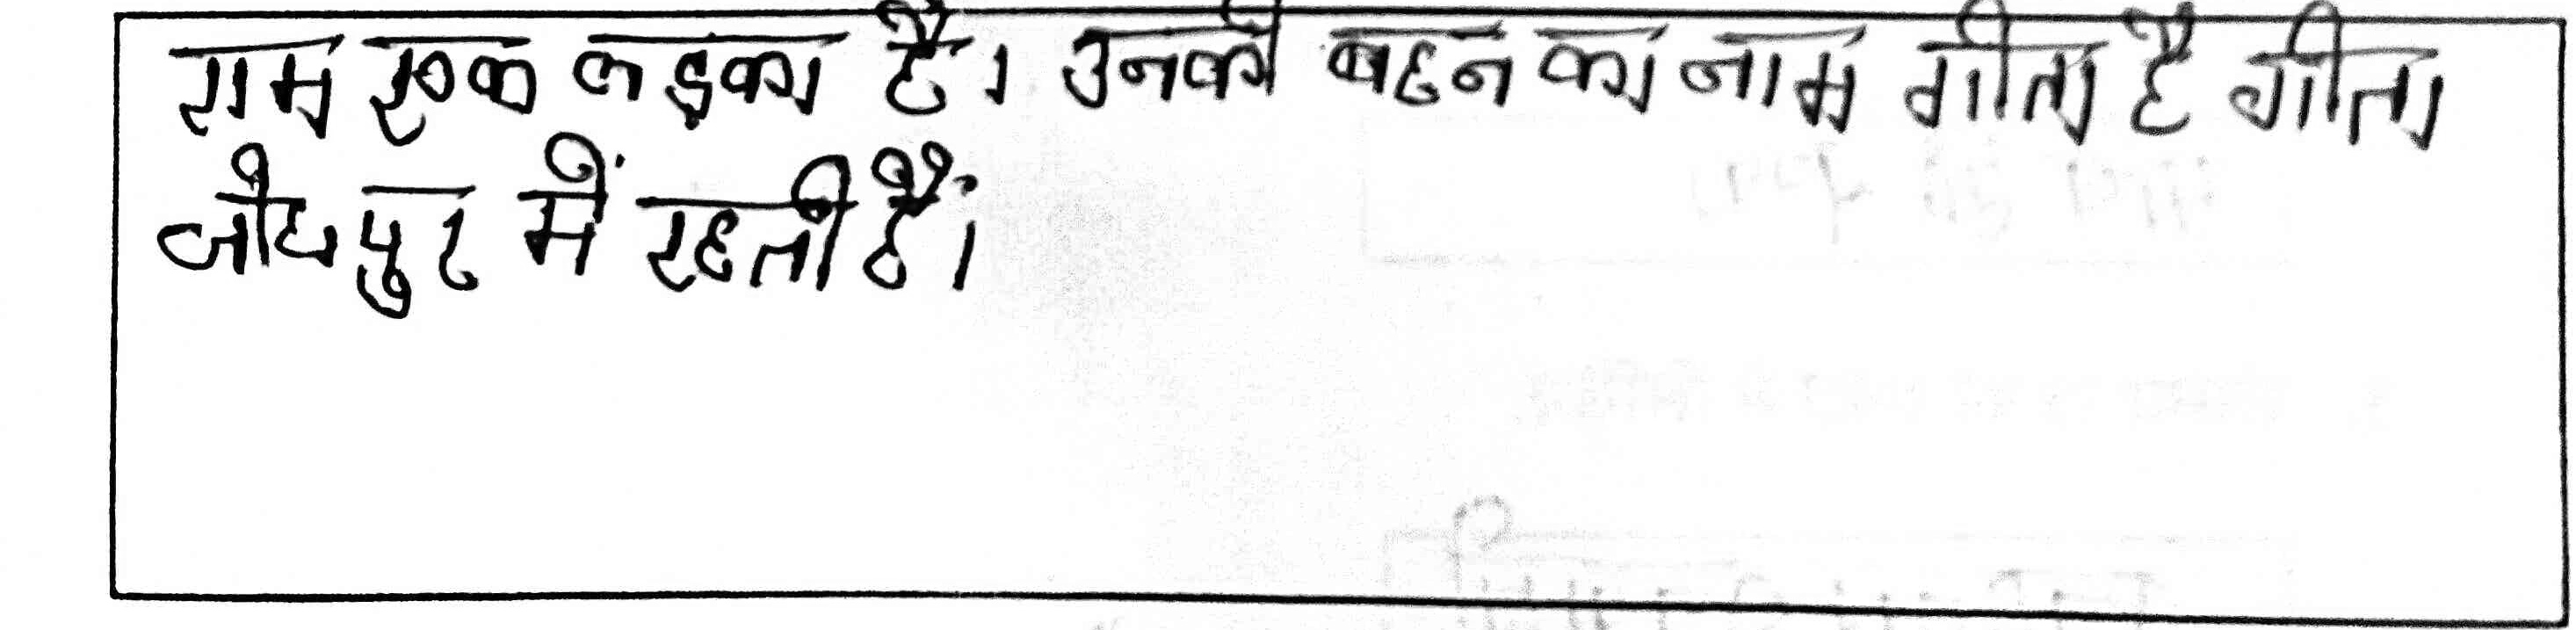 राम एक लडका है। उनकी बहन का नाम गीता है गीता
जोधपुर में रहती हैं।